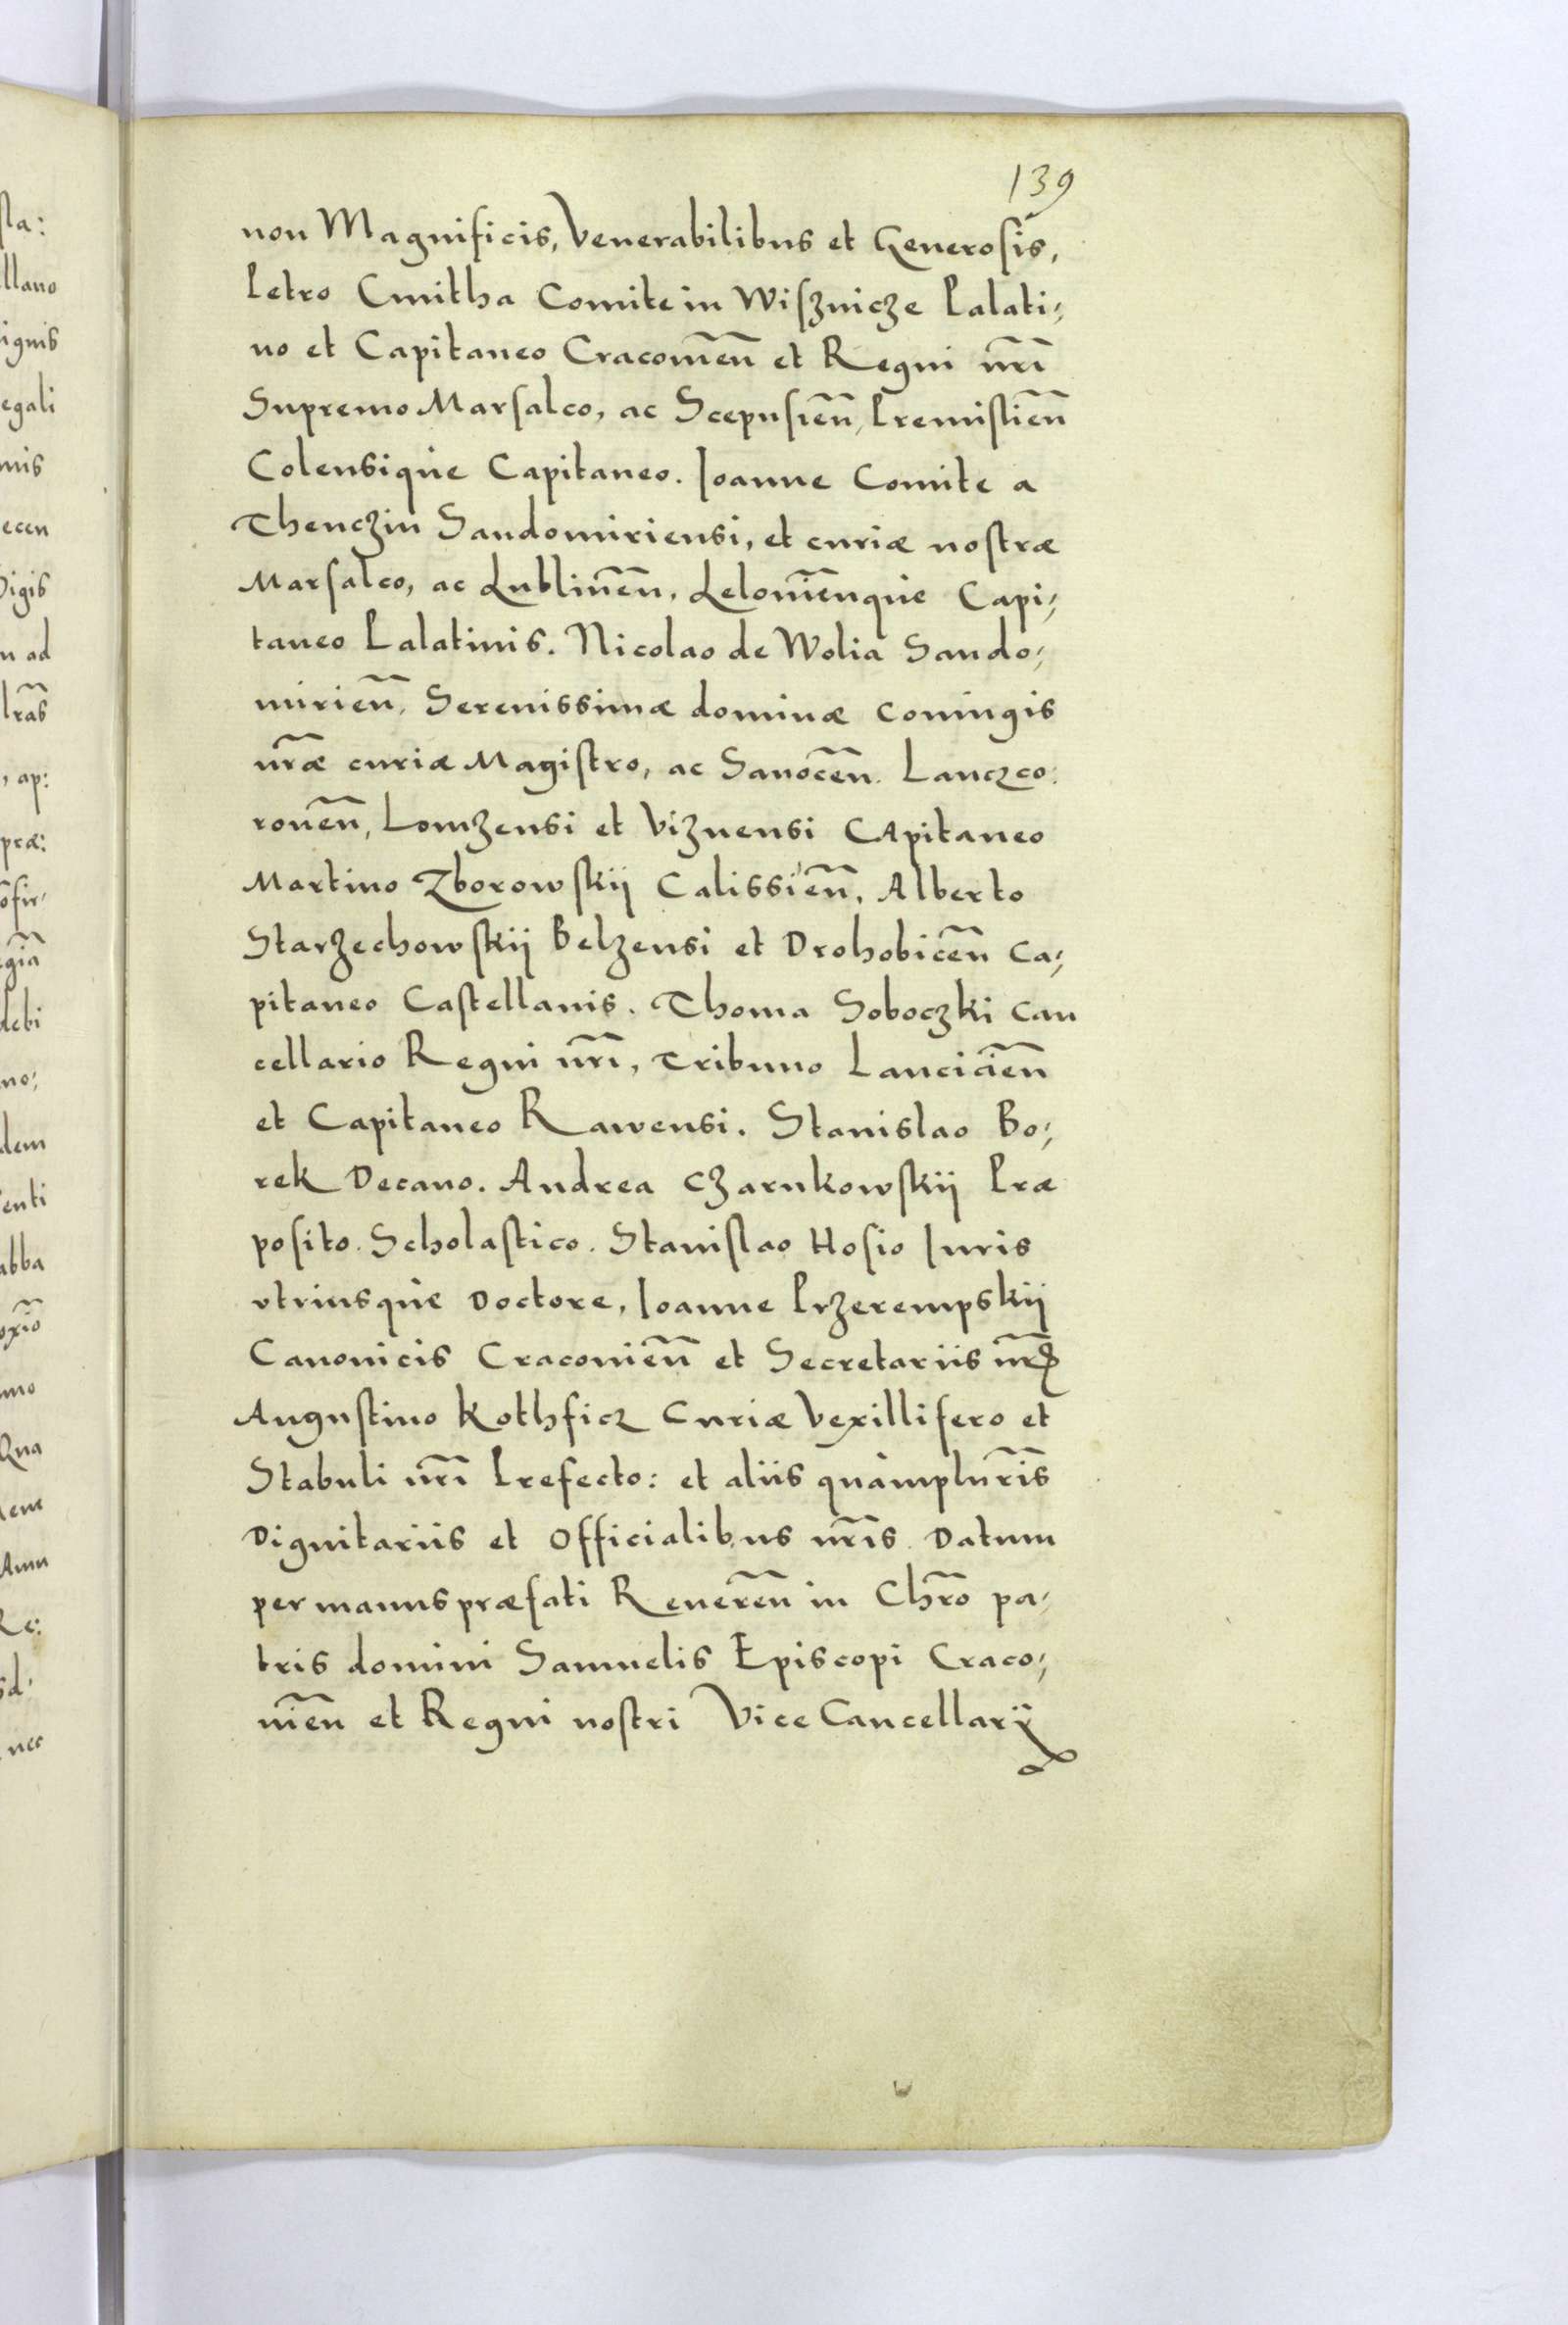 139
non Magnificis, Venerabilibus et Generosis,
Petro Cmitha Comite in Wisznicze Palati;
no et Capitaneo Cracouien̄ et Regni nr̄i
Supremo Marsalco, ac Scepusien̄, Premislien̄
Colensique Capitaneo. Ioanne Comite a
Thenczin Sandomiriensi, et curiæ nostræ
Marsalco, ac Lublinen̄, Lelouien̄que Capi;
taneo Palatinis. Nicolao de Wolia Sando;
mirien̄, Serenissimæ dominæ coniugis
nr̄æ curiæ Magistro, ac Sanocen̄. Lanczco:
ronen̄, Lomzensi et Viznensi Capitaneo
Martino Zborowskij Calissien̄, Alberto
Starzechowskij Belzensi et Drohobicen̄ Ca;
pitaneo Castellanis. Thoma Soboczki Can
cellario Regni nr̄i, Tribuno Lancicien̄
et Capitaneo Rawensi. Stanislao Bo;
rek Decano. Andrea Czarnkowskij Præ
posito. Scholastico. Stanislao Hosio Iuris
vtriusque Doctore, Ioanne Przerempskij
Canonicis Cracouien̄ et Secretariis nr̄is
Augustino Kothficz Curiæ Vexillifero et
Stabuli nr̄i Prefecto: et aliis quàmplur̄is
Dignitariis et Officialibus nr̄is. Datum
per manus præfati Reueren̄ in Chr̄o pa,
tris domini Samuelis Episcopi Craco;
uien̄ et Regni nostri Vice Cancellarij